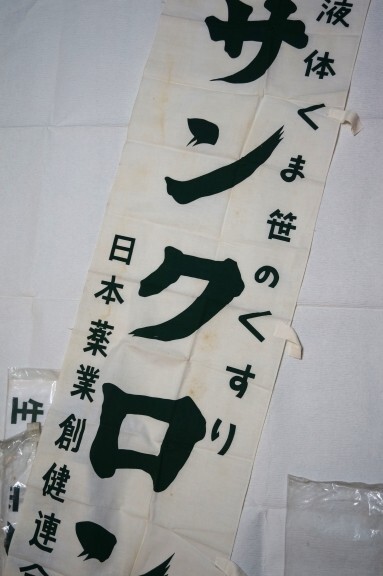 液体くま笹のくすり
サンクロン
日本薬業創健連合